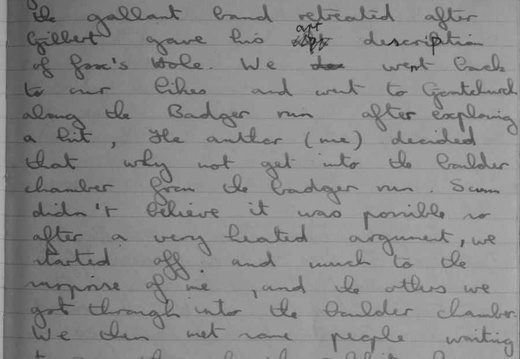 the gallant band retreated after
Gilbert gave his apt description
of fox's Hole. We went back
to our bikes and went to Goatchurch
along the Badger run after exploring
a bit, The author (me) decided
that why not get into the boulder
chamber from the badger run. Sum
didn't believe it was possible so
after a very heated argument, we
started off. and much to the
surprise of me, and the others we
got through into the boulder chamber
We then met some people waiting